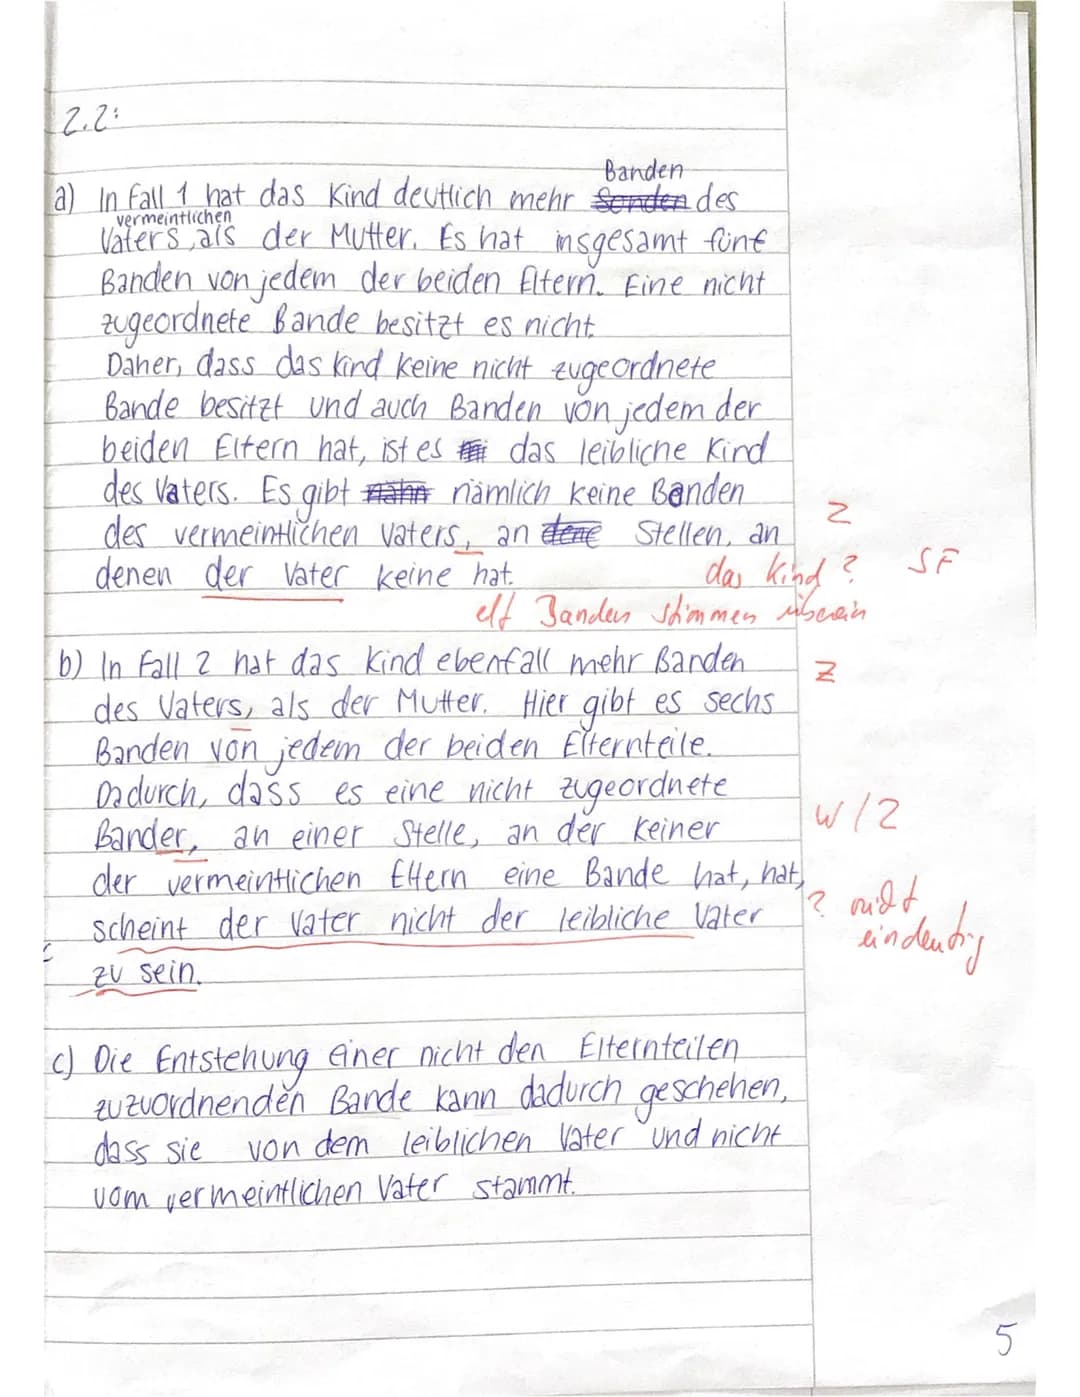 2.2:
Banden
a) In Fall 1 hat das Kind deutlich mehr Sonden des
vermeintlichen
Vaters, als der Mutter. Es hat insgesamt fünf
Banden von jedem der beiden Eltern. Eine nicht
zugeordnete Bande besitzt es nicht.
Daher, dass das Kind keine nicht zugeordnete
Bande besitzt und auch Banden von jedem der
beiden Eltern hat, ist es das leibliche Kind
des Vaters. Es gibt nähm nämlich keine Banden
des vermeintlichen Vaters, an dene Stellen, an Z
denen der Vater keine hat. das Kind? SF
elf Banden stimmen überein
b) In Fall 2 hat das Kind ebenfall mehr Banden Z
des Vaters, als der Mutter. Hier gibt es sechs
Banden von jedem der beiden Elternteile.
Dadurch, dass es eine nicht zugeordnete
Bander, an einer Stelle, an der keiner W/Z
der vermeintlichen Eltern eine Bande hat, hat,
scheint der Vater nicht der leibliche Vater ? nicht
zu sein. eindeutig
c) Die Entstehung einer nicht den Elternteilen
zuzuordnenden Bande kann dadurch geschehen,
dass sie von dem leiblichen Vater und nicht
vom vermeintlichen Vater stammt.
5